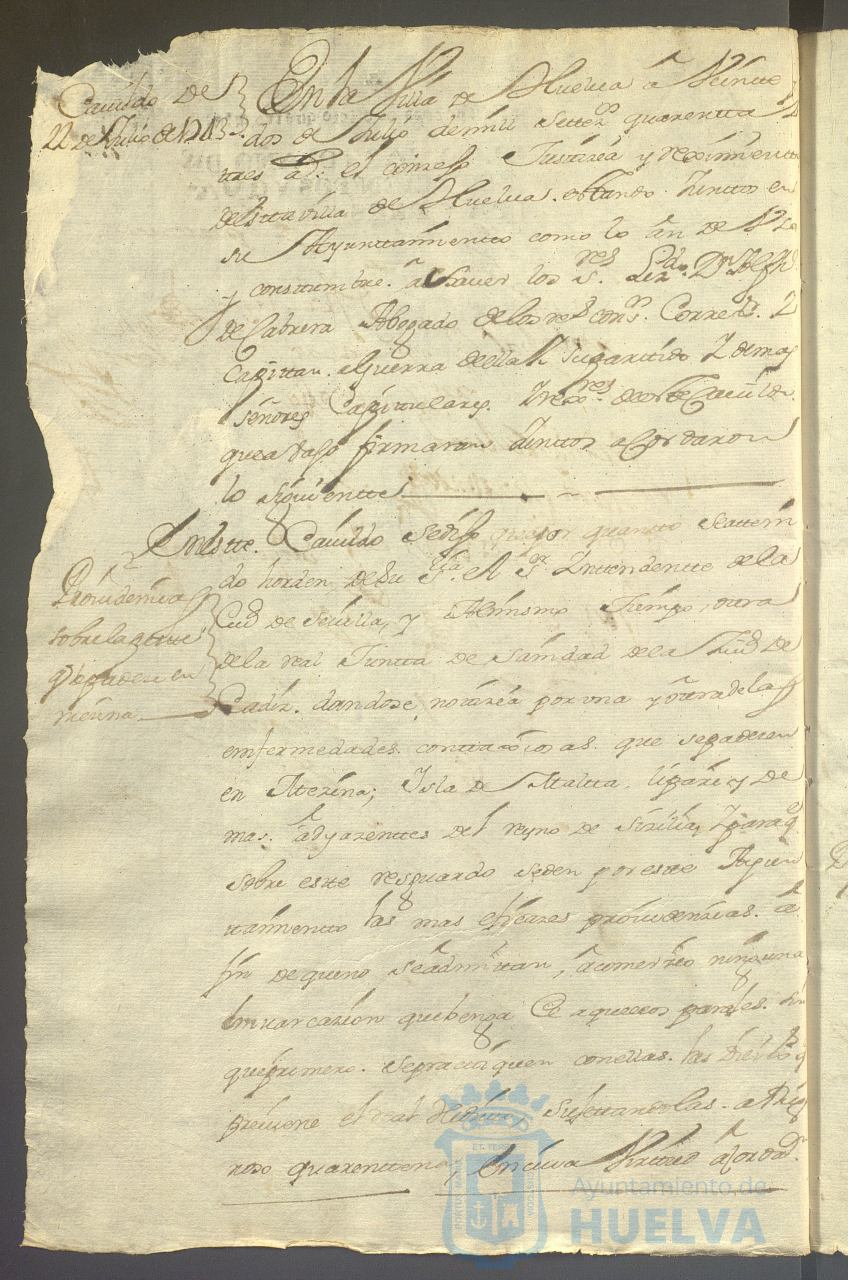 Cavildo de
22 de Julio de 1743
En la Villa de Huelva â Veintte y
dos de Julio de mill Settez.os quarentta y
tres a.s el conzejo Justizia y reximientto
destta villa de Huelva. esttando Junttos en
su Ayunttamientto como lo an de Vso
y consttumbre. â Saver los S.res Liz.do D.n
de Cabrera Abogado de los r.s cons.os Correx.or y
Capittan a Guerra della su parttido y demas
señores Capittulares y rex.res de este Cavildo
que avajo firmaran Junttos acordaron
lo siguientte
Providencia
sobre la
q.e se padese en
mecina
En estte Cavildo se dijo que por quantto se a tteni
do horden de su S.ria el S.or Inttendentte de la
Ciud de Sevilla, y Al mismo Tiempo, otra
de la real Juntta de Sanidad de la Ziud de
Cadiz. dandose notizia por una y ôttra de las
emfermedades conttaxiosas que se padecen
en Mezina; Ysla de Maltta, lipari y de
mas âdyazenttes del reyno de Sizilia, y para q.e
sobre estte resguardo se den por estte Ayun
ttamientto las mas eficazes providenzias. â
fin de que no se admittan, â comerzio ninguna
Envarcazion que benga de aquellos parajes. sin
que primero. se practtiquen con ellas. las q.e
previene el real Sujettandolas. a Rigu
roso quarenttena, En cuia Virttud âcordar.n
Ayuntamiento de
HUELVA